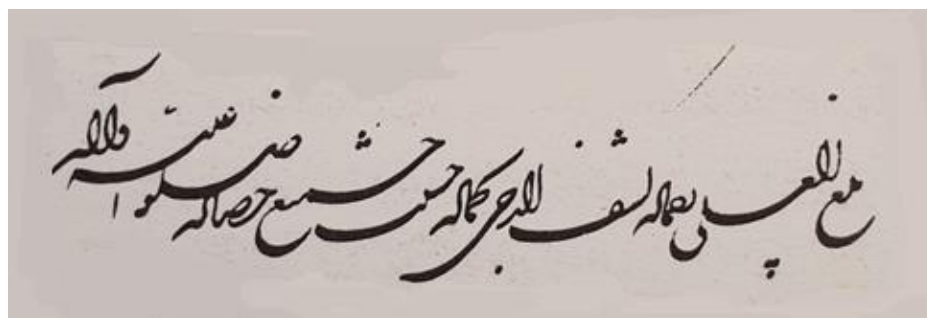 بلغ العلی بکماله کشف الدجی بجماله حسنت جمیع خصاله صلوا علیه وآله